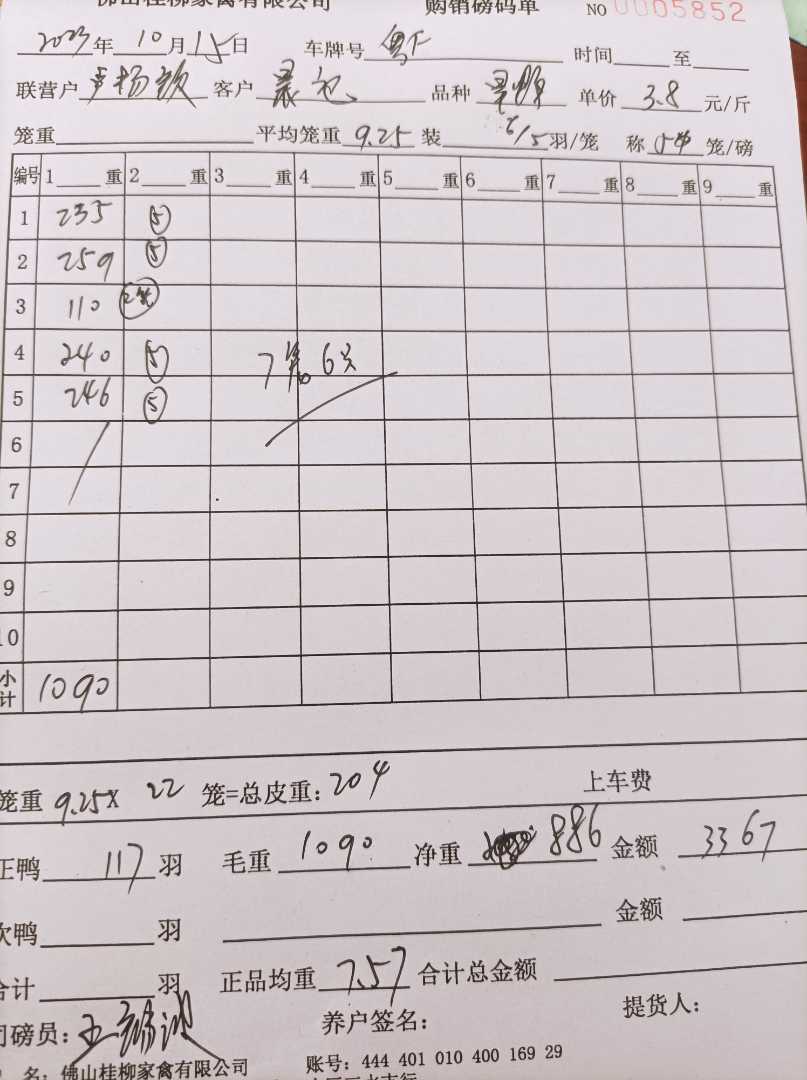 佛山桂柳家禽有限公司 购销磅码单 NO 0005852
2023年 10 月 15 日 车牌号 粤 时间 至
联营户 客户 晨 品种 单价 3.8 元/斤
笼重 平均笼重 9.25 装 6/5 羽/笼 称 笼/磅
编号 1 重 2 重 3 重 4 重 5 重 6 重 7 重 8 重 9 重
1 235 ⑤
2 259 ⑤
3 110
4 240 ⑤ 7笼6只
5 246 ⑤
6
7
8
9
10
小计 1090
笼重 9.25X 22 笼=总皮重: 204 上车费
正鸭 117 羽 毛重 1090 净重 886 金额 3367
次鸭 羽 金额
合计 羽 正品均重 7.57 合计总金额
司磅员: 王 养户签名: 提货人:
名: 佛山桂柳家禽有限公司 账号: 444 401 010 400 169 29